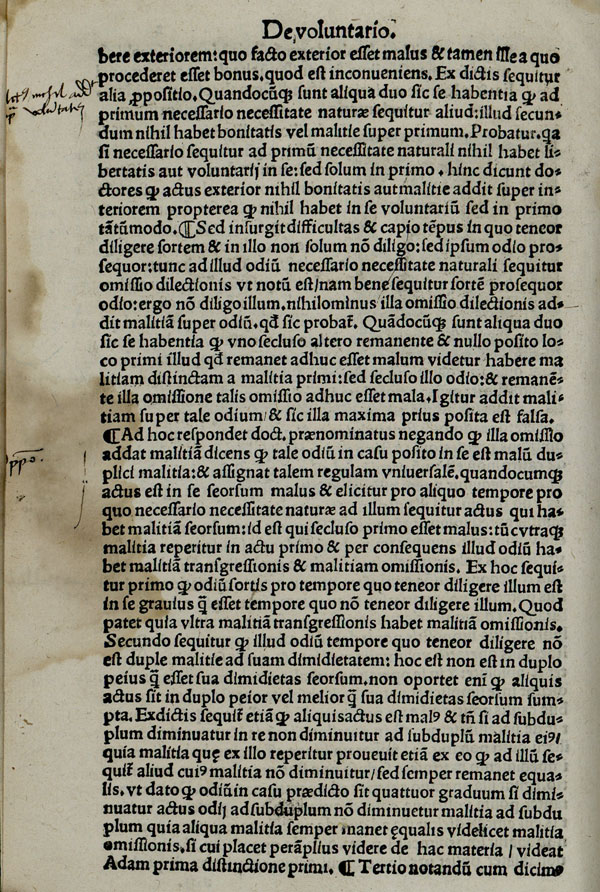 De voluntario.
bere exteriorem: quo facto exterior esset malus & tamen ille a quo
procederet esset bonus. quod est inconueniens. Ex dictis sequitur
alia ꝓpositio. Quandocūq; sunt aliqua duo sic se habentia ꝙ ad
primum necessario necessitate naturæ sequitur aliud: illud secun⸗
dum nihil habet bonitatis vel malitie super primum. Probatur. qa
si necessario sequitur ad primū necessitate naturali nihil habet li⸗
bertatis aut voluntarij in se: sed solum in primo. hinc dicunt do⸗
ctores ꝙ actus exterior nihil bonitatis aut malitie addit super in⸗
teriorem propterea ꝙ nihil habet in se voluntariū sed in primo
tātūmodo. ¶ Sed insurgit difficultas & capio tēpus in quo teneor
diligere sortem & in illo non solum nō diligo: sed ipsum odio pro⸗
sequor: tunc ad illud odiū necessario necessitate naturali sequitur
omissio dilectionis vt notū est/nam bene sequitur sortē prosequor
odio: ergo nō diligo illum. nihilominus illa omissio dilectionis ad⸗
dit malitiā super odiū. qd̄ sic probat̄. Quādocūq; sunt aliqua duo
sic se habentia ꝙ vno secluso altero remanente & nullo posito lo⸗
co primi illud qd̄ remanet adhuc esset malum videtur habere ma
litiam distinctam a malitia primi: sed secluso illo odio: & remanē⸗
te illa omissione talis omissio adhuc esset mala. Igitur addit mali⸗
tiam super tale odium/& sic illa maxima prius posita est falsa.
¶ Ad hoc respondet doct. prænominatus negando ꝙ illa omissio
addat malitiā dicens ꝙ tale odiū in casu posito in se est malū du⸗
plici malitia: & assignat talem regulam vniuersalē. quandocumq;
actus est in se seorsum malus & elicitur pro aliquo tempore pro
quo necessario necessitate naturæ ad illum sequitur actus qui ha⸗
bet malitiā seorsum: id est qui secluso primo esset malus: tūc vtraq;
malitia reperitur in actu primo & per consequens illud odiū ha⸗
bet malitiā transgressionis & malitiam omissionis. Ex hoc sequi⸗
tur primo ꝙ odiū sortis pro tempore quo teneor diligere illum est
in se grauius q̄ esset tempore quo nō teneor diligere illum. Quod
patet quia vltra malitiā transgressionis habet malitiā omissionis.
Secundo sequitur ꝙ illud odiū tempore quo teneor diligere nō
est duple malitie ad suam dimidietatem: hoc est non est in duplo
peius q̄ esset sua dimidietas seorsum. non oportet enī ꝙ aliquis
actus sit in duplo peior vel melior q̄ sua dimidietas seorsum sum⸗
pta. Ex dictis sequit̄ etiā ꝙ aliquis actus est malꝰ & tn̄ si ad subdu⸗
plum diminuatur in re non diminuitur ad subduplū malitia eiꝰ/
quia malitia quę ex illo reperitur prouenit etiā ex eo ꝙ ad illū se⸗
quit̄ aliud cuiꝰ malitia nō diminuitur/sed semper remanet equa⸗
lis. vt dato ꝙ odiū in casu prædicto sit quattuor graduum si dimi⸗
nuatur actus odij ad subduplum nō diminuetur malitia ad subdu
plum quia aliqua malitia semper manet ęqualis videlicet malitia
omissionis. si cui placet perāplius videre de hac materia/videat
Adam prima distinctione primi. ¶ Tertio notandū cum dicimꝰ
ꝓpō.